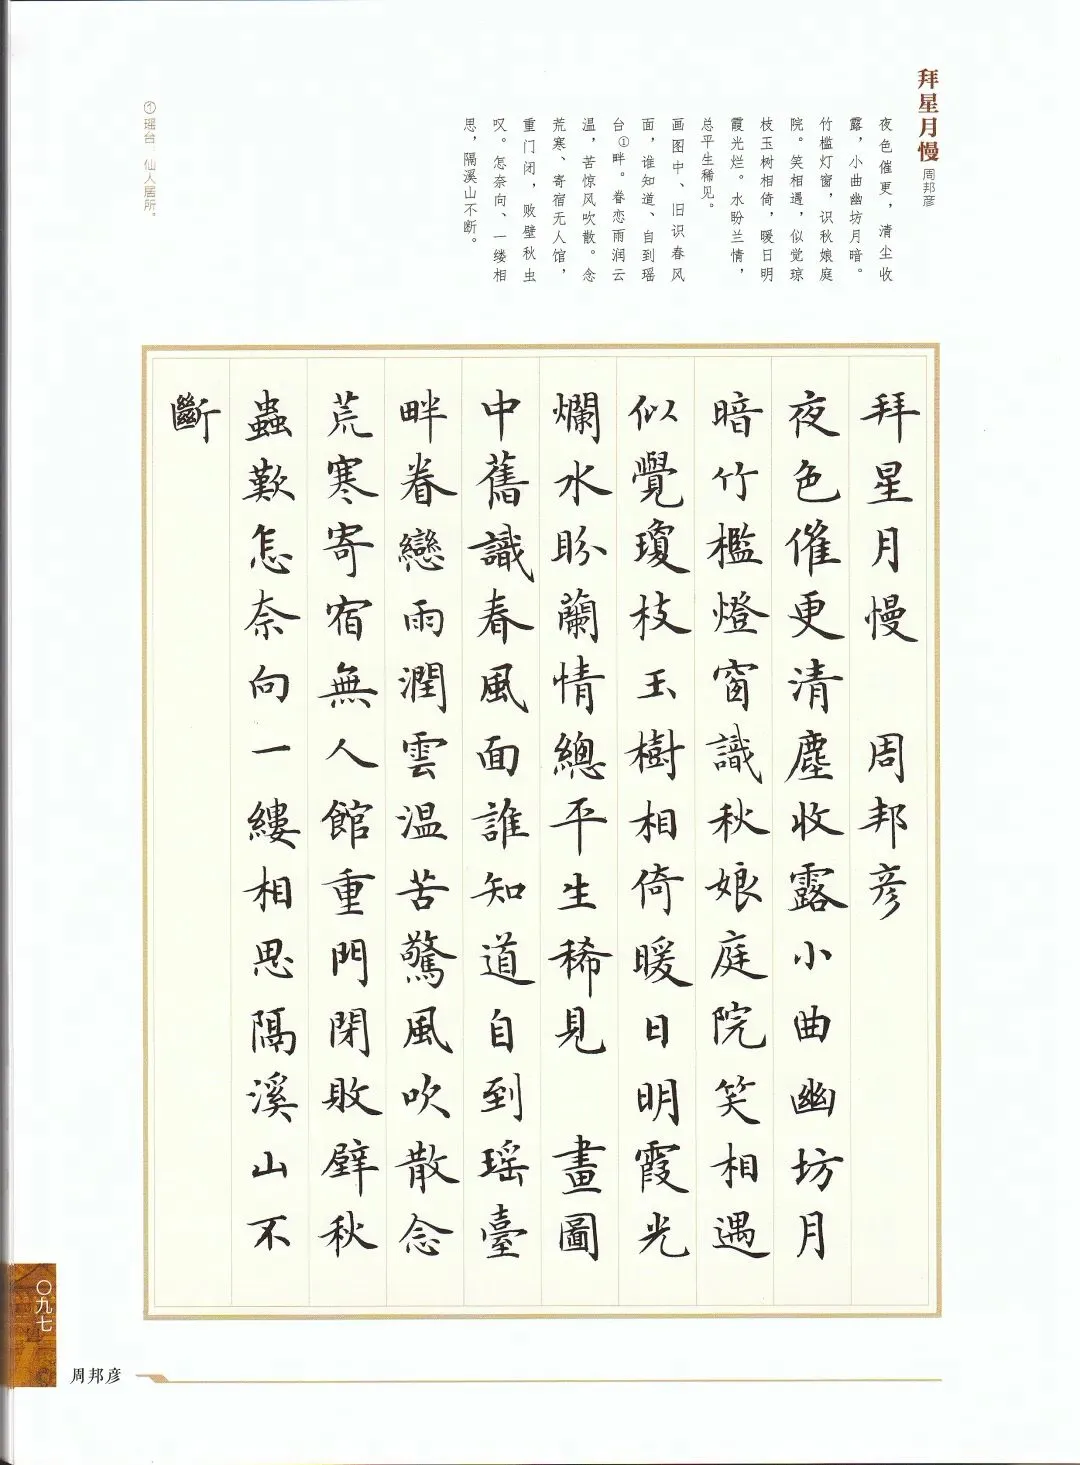 拜星月慢
周邦彦
夜色催更，清尘收
露，小曲幽坊月暗。
竹槛灯窗，识秋娘庭
院。笑相遇，似觉琼
枝玉树相倚，暖日明
霞光烂。水盼兰情，
总平生稀见。
画图中、旧识春风
面，谁知道、自到瑶
台①畔。眷恋雨润云
温，苦惊风吹散。念
荒寒、寄宿无人馆，
重门闭，败壁秋虫
叹。怎奈向、一缕相
思，隔溪山不断。
①瑶台：仙人居所。
拜星月慢 周邦彦
夜色催更清塵收露小曲幽坊月
暗竹檻燈窗識秋娘庭院笑相遇
似覺瓊枝玉樹相倚暖日明霞光
爛水盼蘭情總平生稀見 畫圖
中舊識春風面誰知道自到瑶臺
畔眷戀雨潤雲温苦驚風吹散念
荒寒寄宿無人館重門閉敗壁秋
蟲歎怎奈向一縷相思隔溪山不
斷
〇九七
周邦彦